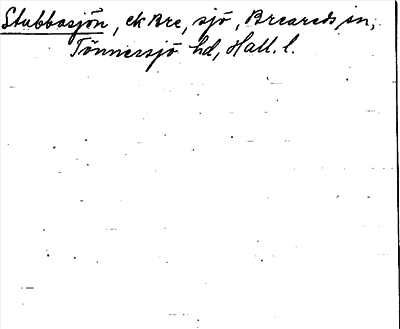 Stubbasjön, ek Bre, sjö, Breareds sn,
Tönnersjö hd, Hall. l.